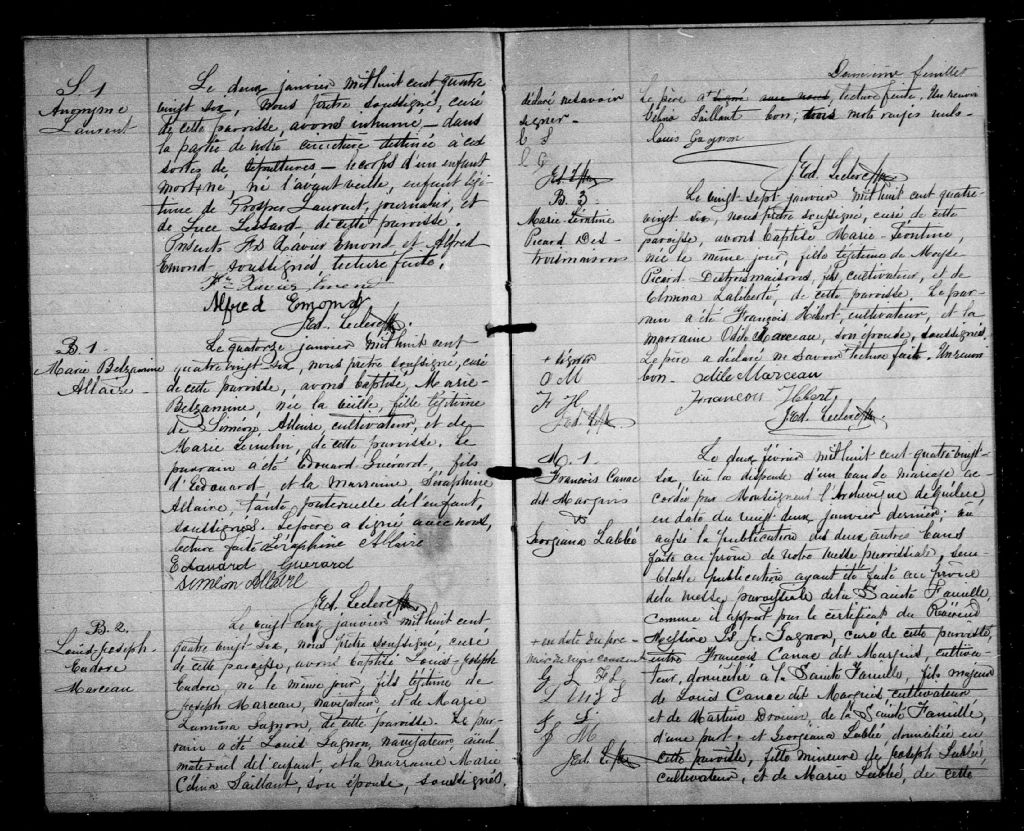 S. 1
Anonyme
Laurent
Le deux janvier mil huit cent quatre
vingt six, nous prêtre soussigné, curé
de cette paroisse, avons inhumé dans
la partie de notre cimetière destinée à ces
sortes de sépultures le corps d'un enfant
mort-né, né l'avant veille, enfant légi-
time de Prosper Laurent, journalier, et
de Luce Lessard, de cette paroisse.
Présents Frs Xavier Emond et Alfred
Emond soussignés, lecture faite.
Xavier
Alfred Emond
Ed. Leclerc Ptre.
B. 1.
Marie Belzamine
Allaire
Le quatorze janvier mil huit cent
quatre vingt six, nous prêtre soussigné, curé
de cette paroisse, avons baptisé, Marie-
Belzamine, née la veille, fille légitime
de Siméon Allaire, cultivateur, et de
Marie de cette paroisse. Le
parrain a été Edouard Guérard, fils
d'Edouard, et la marraine Séraphine
Allaire, tante paternelle de l'enfant,
soussignés. Le père a signé avec nous,
lecture faite Séraphine Allaire
Edouard Guerard
Siméon Allaire
Ed. Leclerc Ptre.
B. 2.
Louis-Joseph-
Eudore
Marceau
Le vingt cinq janvier mil huit cent-
quatre vingt six, nous prêtre soussigné, curé
de cette paroisse, avons baptisé Louis-Joseph
Eudore, né le même jour, fils légitime de
Joseph Marceau, navigateur, et de Marie
Lumina Gagnon, de cette paroisse. Le par-
rain a été Louis Gagnon, navigateur, aïeul
maternel de l'enfant, et la marraine Marie
Célina Paillant, son épouse, soussignés.
feuillet
déclaré ne savoir
signer
Le père a signé avec nous, lecture faite. Un renvoi
Célina bon; trois mots rayés nuls
Louis Gagnon
Ed. Leclerc Ptre
B. 3.
Marie-Léontine
Picard Des-
troismaisons
Le vingt sept janvier mil huit cent quatre-
vingt six, nous prêtre soussigné, curé de cette
paroisse, avons baptisé Marie Léontine,
née le même jour, fille légitime de Moyse
Picard Destroismaisons, fils, cultivateur, et de
Elmina Laliberté, de cette paroisse. Le par-
rain a été François Hébert, cultivateur, et la
marraine Odile Marceau, son épouse, soussignés.
Le père a déclaré ne savoir + lecture faite. Un renvoi
bon. Odile Marceau
+ signer
O M
F H
François Hebert
Ed. Leclerc Ptre.
M. 1.
François Canac
dit Marquis
vs
Georgeana Lablée
Le deux février mil huit cent quatre vingt-
six, vu la dispense d'un ban de mariage ac-
cordée par Monseigneur l'Archevêque de Québec
en date du vingt deux janvier dernier; vu
aussi la publication des deux autres bans
faite au prône de notre messe paroissiale, sem-
blable publication ayant été faite au prône
de la messe paroissiale de la Sainte Famille
comme il appert par le certificat du Révérend
Messire Gagnon, curé de cette paroisse,
entre François Canac dit Marquis, cultiva-
teur, domicilié à la Sainte Famille, fils majeur
de Louis Canac dit Marquis cultivateur
et de de la Sainte Famille,
d'une part; et Georgeana Lablée domiciliée en
cette paroisse, fille mineure de Joseph Lablée,
cultivateur, et de Marie Lablée, de cette
+ en date du pre-